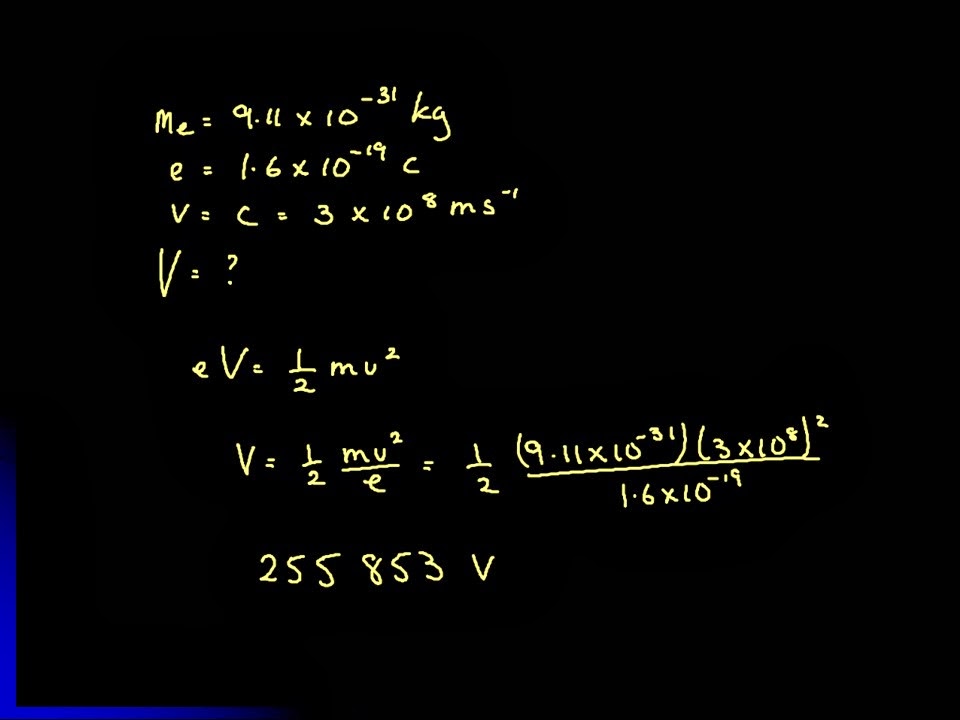 Me = 9.11 x 10^-31 kg
e = 1.6 x 10^-19 C
v = c = 3 x 10^8 ms^-1
V = ?
eV = 1/2 mv^2
V = 1/2 mv^2/e = 1/2 (9.11x10^-31)(3x10^8)^2/1.6x10^-19
255 853 V